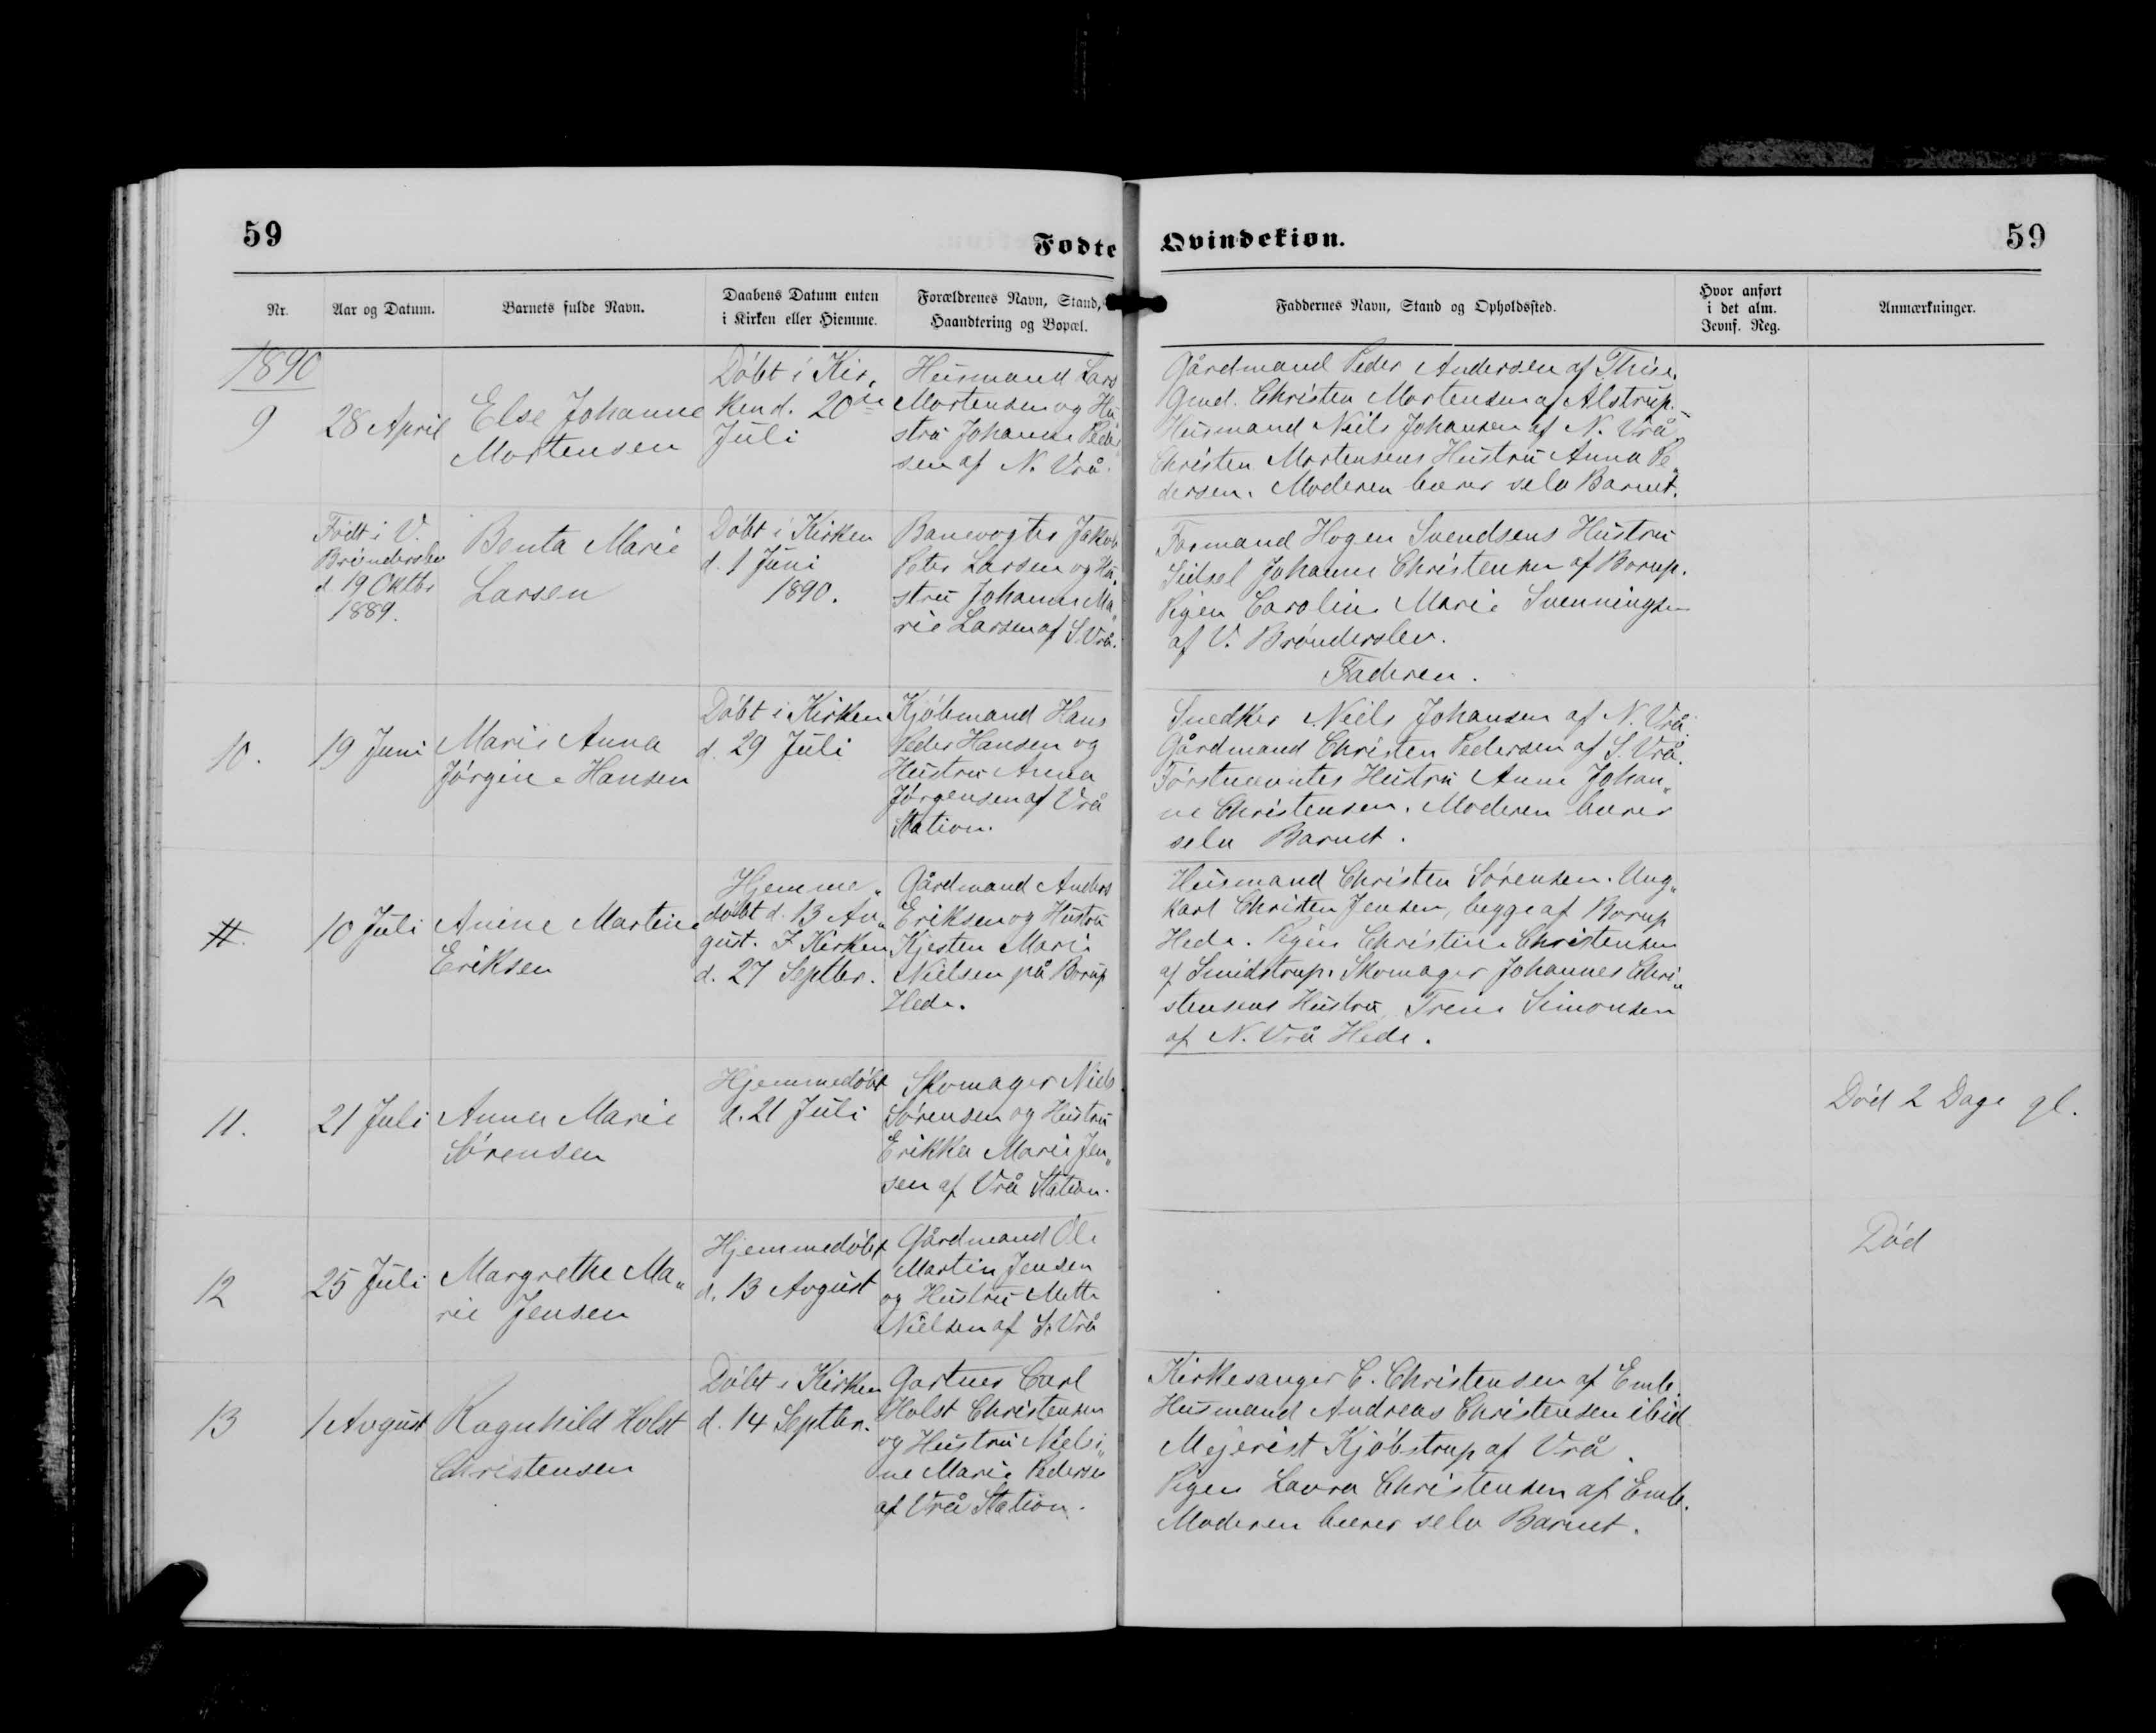 59
Fødte
Qvindekiøn.
59
Nr.
Aar og Datum.
Barnets fulde Navn.
Daabens Datum enten
i Kirken eller Hiemme.
Forældrenes Navn, Stand,
Haandtering og Bopæl.
Faddernes Navn, Stand og Opholdssted.
Hvor anført
i det alm.
Jevnf. Reg.
Anmærkninger.
1890
9
28 April
Else Johanne
Mortensen
Døbt i Kir„
ken d. 20de
Juli
Husmand Lars
Mortensen og Hu„
stru Johanne Peder„
sen af N. Vrå.
Gårdmand Peder Andersen af Thise.
Gmd. Christen Mortensen af Alstrup.
Husmand Niels Johansen af N. Vrå.
Christen Mortensens Hustru Anna Pe„
dersen. Moderen bærer selv Barnet.
Født i V.
Brønderslev
d 19 Oktbr
1889.
Benta Marie
Larsen
Døbt i Kirken
d. 1 Juni
1890.
Banevogter Jakob
Peter Larsen og Hu„
stru Johanne Ma„
rie Larsen af S. Vrå.
Formand Hogen Svendsens Hustru
Sidsel Johanne Christensen af Borup.
Pigen Caroline Marie Svenningsen
af V. Brønderslev.
Faderen.
10.
19 Juni
Marie Anna
Jørgine Hansen
Døbt i Kirken
d. 29 Juli
Kjøbmand Hans
Peder Hansen og
Hustru Anna
Jørgensen af Vrå
Station.
Snedker Niels Johansen af N. Vrå.
Gårdmand Christen Pedersen af S. Vrå.
Førstnævntes Hustru Anne Johan„
ne Christensen. Moderen bærer
selv Barnet.
11.
10 Juli
Anine Martine
Eriksen
Hjemme„
døbt d. 13 Au„
gust. I Kirken
d. 27 Septbr.
Gårdmand Anders
Eriksen og Hustru
Kjesten Marie
Nielsen på Borup
Hede.
Husmand Christen Sørensen. Ung„
karl Christen Jensen, begge af Borup
Hede. Pigen Christine Christensen
af Smidstrup. Skomager Johannes Chri„
stensens Hustru Trine Simonsen
af N. Vrå Hede.
11.
21 Juli
Anna Marie
Sørensen
Hjemmedøbt
d. 21 Juli
Skomager Niels
Sørensen og Hustru
Erikka Marie Jen„
sen af Vrå Station.
Død 2 Dage gl.
12
25 Juli
Margrethe Ma„
rie Jensen
Hjemmedøbt
d. 13 Avgust
Gårdmand Ole
Martin Jensen
og Hustru Mette
Nielsen af S. Vrå
Død
13
1 Avgust
Ragnhild Holst
Christensen
Døbt i Kirken
d. 14 Septbr.
Gartner Carl
Holst Christensen
og Hustru Nielsi„
ne Marie Pedersen
af Vrå Station.
Kirkesanger C. Christensen af Emb.
Husmand Andreas Christensen ibid
Mejerist Kjøbstrup af Vrå.
Pigen Lavra Christensen af Emb.
Moderen bærer selv Barnet.